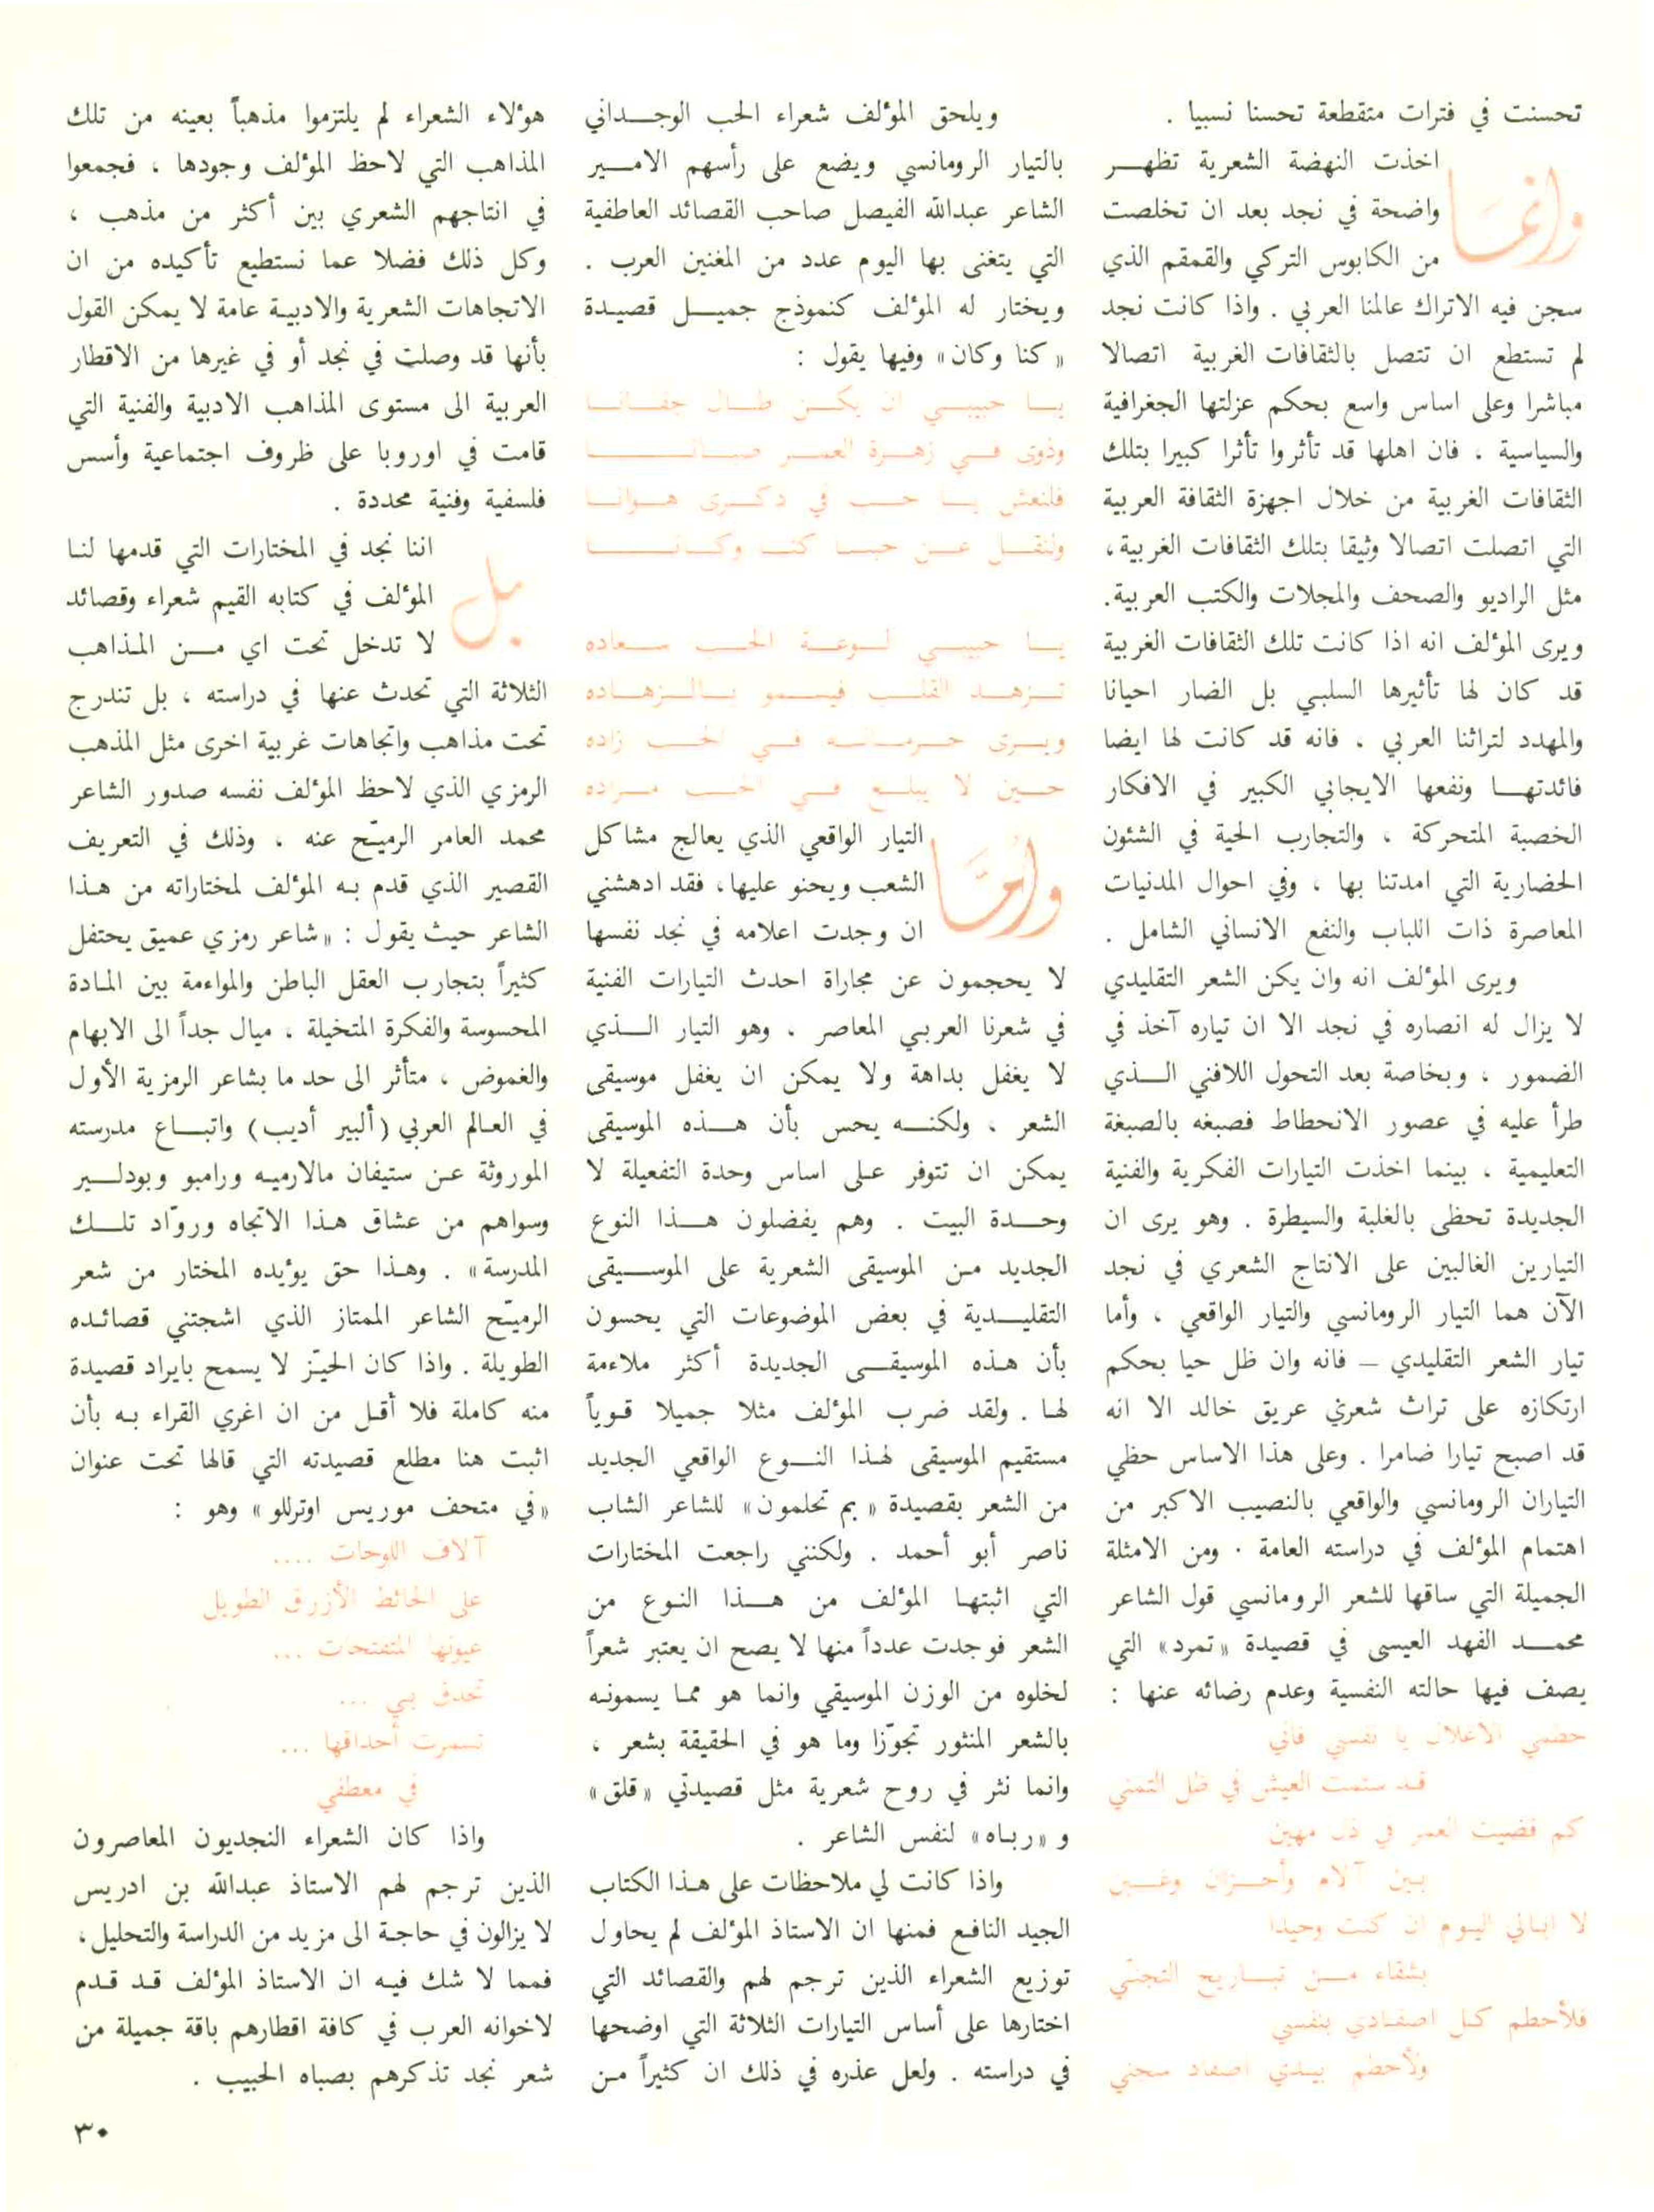 تحسنت في فترات متقطعة تحسنا نسبيا .
وانما
اخذت النهضة الشعرية تظهر
واضحة في نجد بعد ان تخلصت
من الكابوس التركي والقمقم الذي
سجن فيه الاتراك عالمنا العربي . واذا كانت نجد
لم تستطع ان تتصل بالثقافات الغربية اتصالا
مباشرا وعلى اساس واسع بحكم عزلتها الجغرافية
والسياسية ، فان اهلها قد تأثروا تأثرا كبيرا بتلك
الثقافات الغربية من خلال اجهزة الثقافة العربية
التي اتصلت اتصالا وثيقا بتلك الثقافات الغربية،
مثل الراديو والصحف والمجلات والكتب العربية.
ويرى المؤلف انه اذا كانت تلك الثقافات الغربية
قد كان لها تأثيرها السلبي بل الضار احيانا
والمهدد لتراثنا العربي ، فانه قد كانت لها ايضا
فائدتها ونفعها الايجابي الكبير في الافكار
الخصبة المتحركة ، والتجارب الحية في الشئون
الحضارية التي امدتنا بها ، وفي احوال المدنيات
المعاصرة ذات اللباب والنفع الانساني الشامل .
ويرى المؤلف انه وان يكن الشعر التقليدي
لا يزال له انصاره في نجد الا ان تياره آخذ في
الضمور ، وبخاصة بعد التحول اللافني الذي
طرأ عليه في عصور الانحطاط فصبغه بالصبغة
التعليمية ، بينما اخذت التيارات الفكرية والفنية
الجديدة تحظى بالغلبة والسيطرة . وهو يرى ان
التيارين الغالبين على الانتاج الشعري في نجد
الآن هما التيار الرومانسي والتيار الواقعي ، وأما
تيار الشعر التقليدي – فانه وان ظل حيا بحكم
ارتكازه على تراث شعري عريق خالد الا انه
قد اصبح تيارا ضامرا . وعلى هذا الاساس حظي
التياران الرومانسي والواقعي بالنصيب الاكبر من
اهتمام المؤلف في دراسته العامة . ومن الامثلة
الجميلة التي ساقها للشعر الرومانسي قول الشاعر
محمد الفهد العيسى في قصيدة «تمرد» التي
يصف فيها حالته النفسية وعدم رضائه عنها :
حطمي الاغلال يا نفسي فاني
قد سئمت العيش في ظل التمني
كم قضيت العمر في ذل مهين
بين آلام وأحزان وغبن
لا ابالي اليوم ان كنت وحيدا
بشقاء من تباريح التجنّي
فلأحطم كل اصفادي بنفسي
ولأحطم بيدي اصفاد سجني
ويلحق المؤلف شعراء الحب الوجداني
بالتيار الرومانسي ويضع على رأسهم الامير
الشاعر عبدالله الفيصل صاحب القصائد العاطفية
التي يتغنى بها اليوم عدد من المغنين العرب .
ويختار له المؤلف كنموذج جميل قصيدة
« كنا وكان» وفيها يقول :
يا حبيبي ان يكن طال جفانا
وذوى في زهرة العمر صبانا
فلنعش يا حب في ذكرى هوانا
ولنقل عن حبنا كنا وكانا
يا حبيبي لوعة الحب سعاده
تزهد القلب فيسمو بالزهاده
ويرى حرمانه في الحب زاده
حين لا يبلغ في الحب مراده
وأمّا
التيار الواقعي الذي يعالج مشاكل
الشعب ويحنو عليها، فقد ادهشني
ان وجدت اعلامه في نجد نفسها
لا يحجمون عن مجاراة احدث التيارات الفنية
في شعرنا العربي المعاصر ، وهو التيار الذي
لا يغفل بداهة ولا يمكن ان يغفل موسيقى
الشعر ، ولكنه يحس بأن هذه الموسيقى
يمكن ان تتوفر على اساس وحدة التفعيلة لا
وحدة البيت . وهم يفضلون هذا النوع
الجديد من الموسيقى الشعرية على الموسيقى
التقليدية في بعض الموضوعات التي يحسون
بأن هذه الموسيقى الجديدة أكثر ملاءمة
لها . ولقد ضرب المؤلف مثلا جميلا قوياً
مستقيم الموسيقى لهذا النوع الواقعي الجديد
من الشعر بقصيدة «بم تحلمون» للشاعر الشاب
ناصر أبو أحمد . ولكنني راجعت المختارات
التي اثبتها المؤلف من هذا النوع من
الشعر فوجدت عدداً منها لا يصح ان يعتبر شعراً
لخلوه من الوزن الموسيقي وانما هو مما يسمونه
بالشعر المنثور تجوّزا وما هو في الحقيقة بشعر ،
وانما نثر في روح شعرية مثل قصيدتي «قلق»
و «رباه» لنفس الشاعر .
واذا كانت لي ملاحظات على هذا الكتاب
الجيد النافع فمنها ان الاستاذ المؤلف لم يحاول
توزيع الشعراء الذين ترجم لهم والقصائد التي
اختارها على أساس التيارات الثلاثة التي اوضحها
في دراسته . ولعل عذره في ذلك ان كثيراً من
هؤلاء الشعراء لم يلتزموا مذهباً بعينه من تلك
المذاهب التي لاحظ المؤلف وجودها ، فجمعوا
في انتاجهم الشعري بين أكثر من مذهب ،
وكل ذلك فضلا عما نستطيع تأكيده من ان
الاتجاهات الشعرية والادبية عامة لا يمكن القول
بأنها قد وصلت في نجد أو في غيرها من الاقطار
العربية الى مستوى المذاهب الادبية والفنية التي
قامت في اوروبا على ظروف اجتماعية وأسس
فلسفية وفنية محددة .
بل
اننا نجد في المختارات التي قدمها لنا
المؤلف في كتابه القيم شعراء وقصائد
لا تدخل تحت اي من المذاهب
الثلاثة التي تحدث عنها في دراسته ، بل تندرج
تحت مذاهب واتجاهات غربية اخرى مثل المذهب
الرمزي الذي لاحظ المؤلف نفسه صدور الشاعر
محمد العامر الرميّح عنه ، وذلك في التعريف
القصير الذي قدم به المؤلف لمختاراته من هذا
الشاعر حيث يقول : «شاعر رمزي عميق يحتفل
كثيراً بتجارب العقل الباطن والمواءمة بين المادة
المحسوسة والفكرة المتخيلة ، ميال جداً الى الابهام
والغموض ، متأثر الى حد ما بشاعر الرمزية الأول
في العالم العربي (ألبير أديب) واتباع مدرسته
الموروثة عن ستيفان مالارميه ورامبو وبودلير
وسواهم من عشاق هذا الاتجاه وروّاد تلك
المدرسة» . وهذا حق يؤيده المختار من شعر
الرميّح الشاعر الممتاز الذي اشجتني قصائده
الطويلة . واذا كان الحيّز لا يسمح بايراد قصيدة
منه كاملة فلا أقل من ان اغري القراء به بأن
اثبت هنا مطلع قصيدته التي قالها تحت عنوان
«في متحف موريس اوترللو» وهو :
آلاف اللوحات ....
على الحائط الأزرق الطويل
عيونها المتفتحات ...
تحدق بي ...
تسمرت أحداقها ...
في معطفي
واذا كان الشعراء النجديون المعاصرون
الذين ترجم لهم الاستاذ عبدالله بن ادريس
لا يزالون في حاجة الى مزيد من الدراسة والتحليل،
فمما لا شك فيه ان الاستاذ المؤلف قد قدم
لاخوانه العرب في كافة اقطارهم باقة جميلة من
شعر نجد تذكرهم بصباه الحبيب .
٣٠